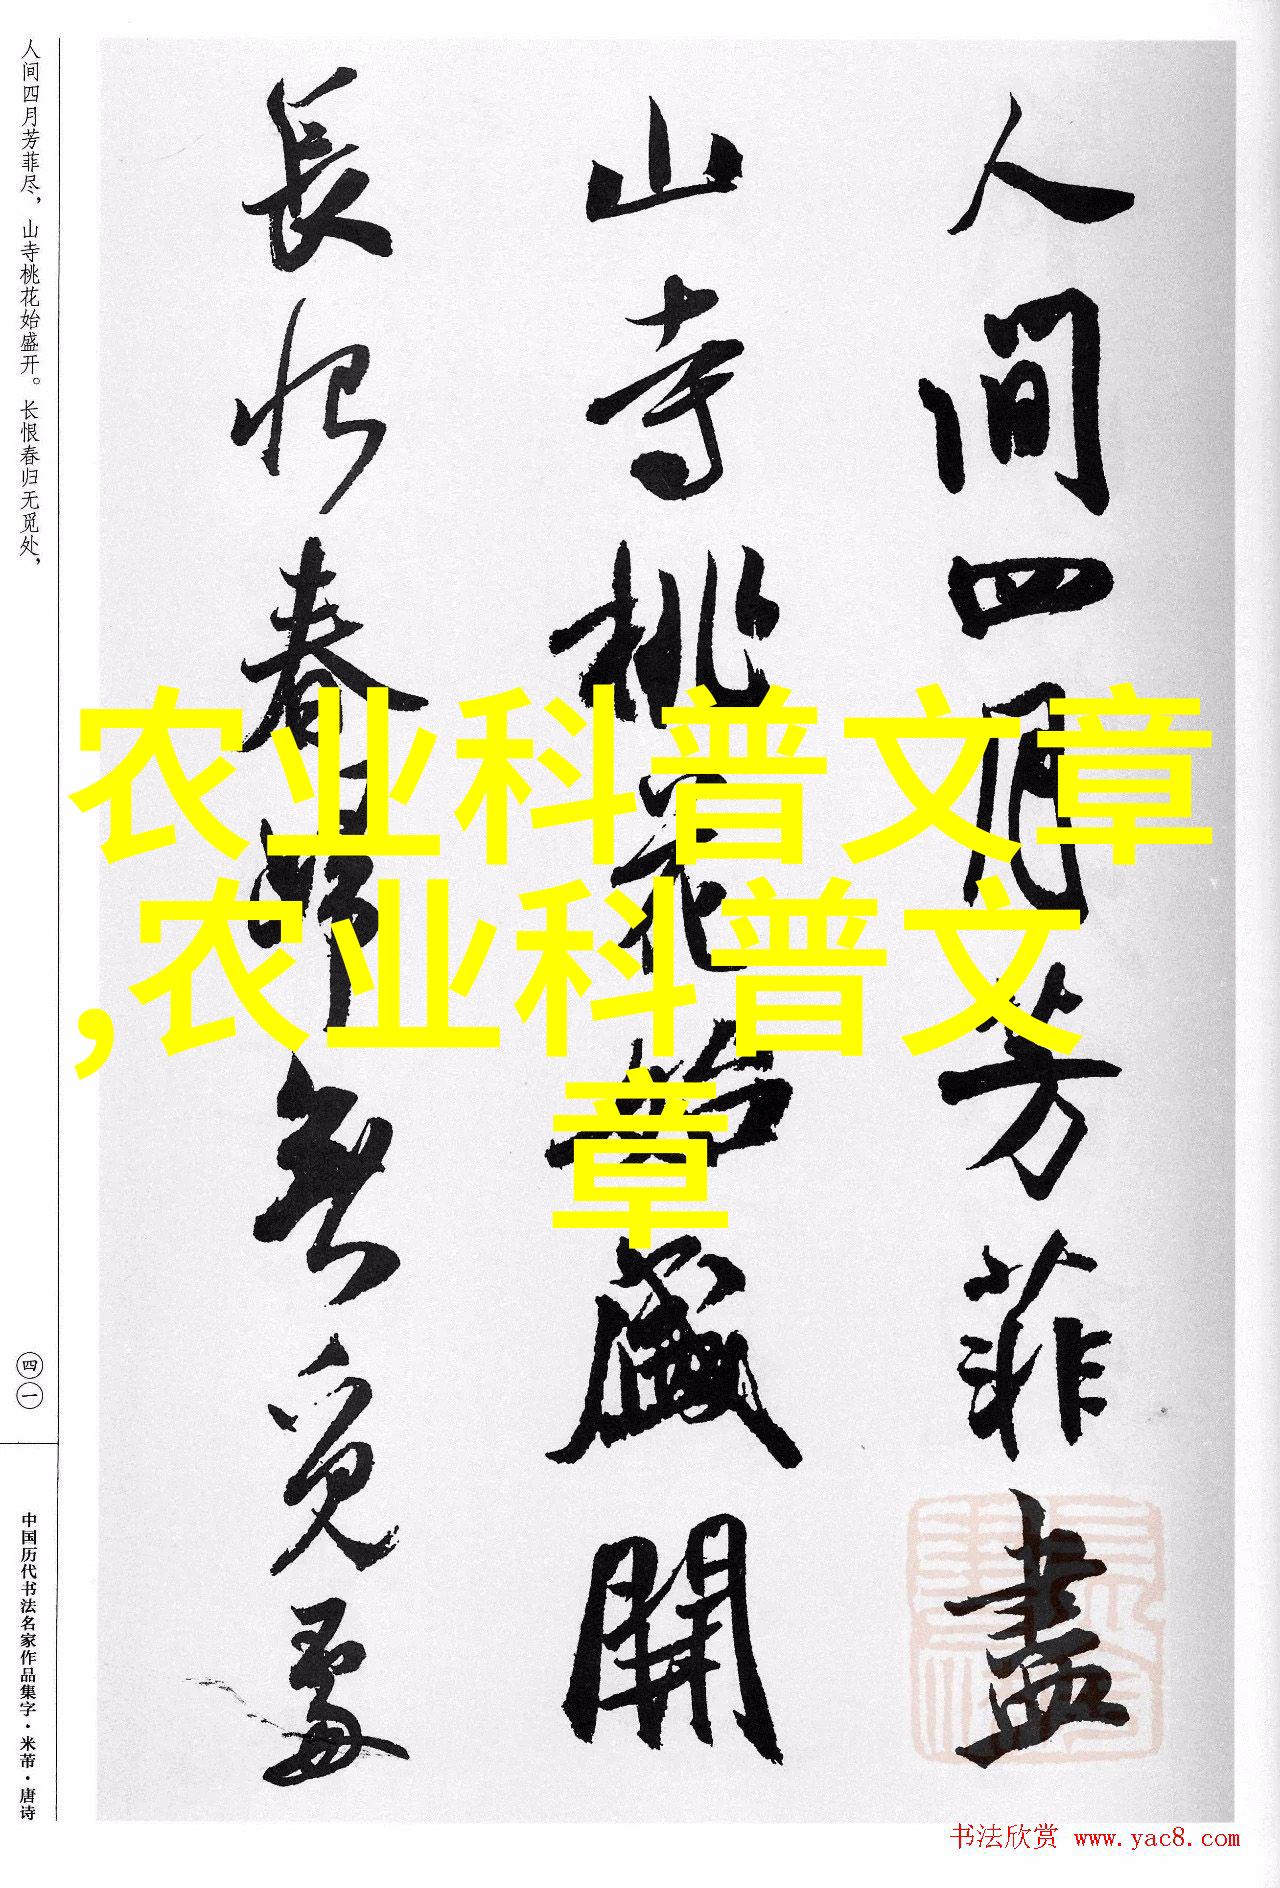 人间四月芳菲尽，山寺桃花始盛开。长恨春归无觅处，
四一
中国历代书法名家作品集字·米芾·唐诗
人間四月芳菲盡
山寺桃花始盛開
長恨春歸無覓處
农业科普文章
,农业科普文
章
书法欣赏 www.yac8.com